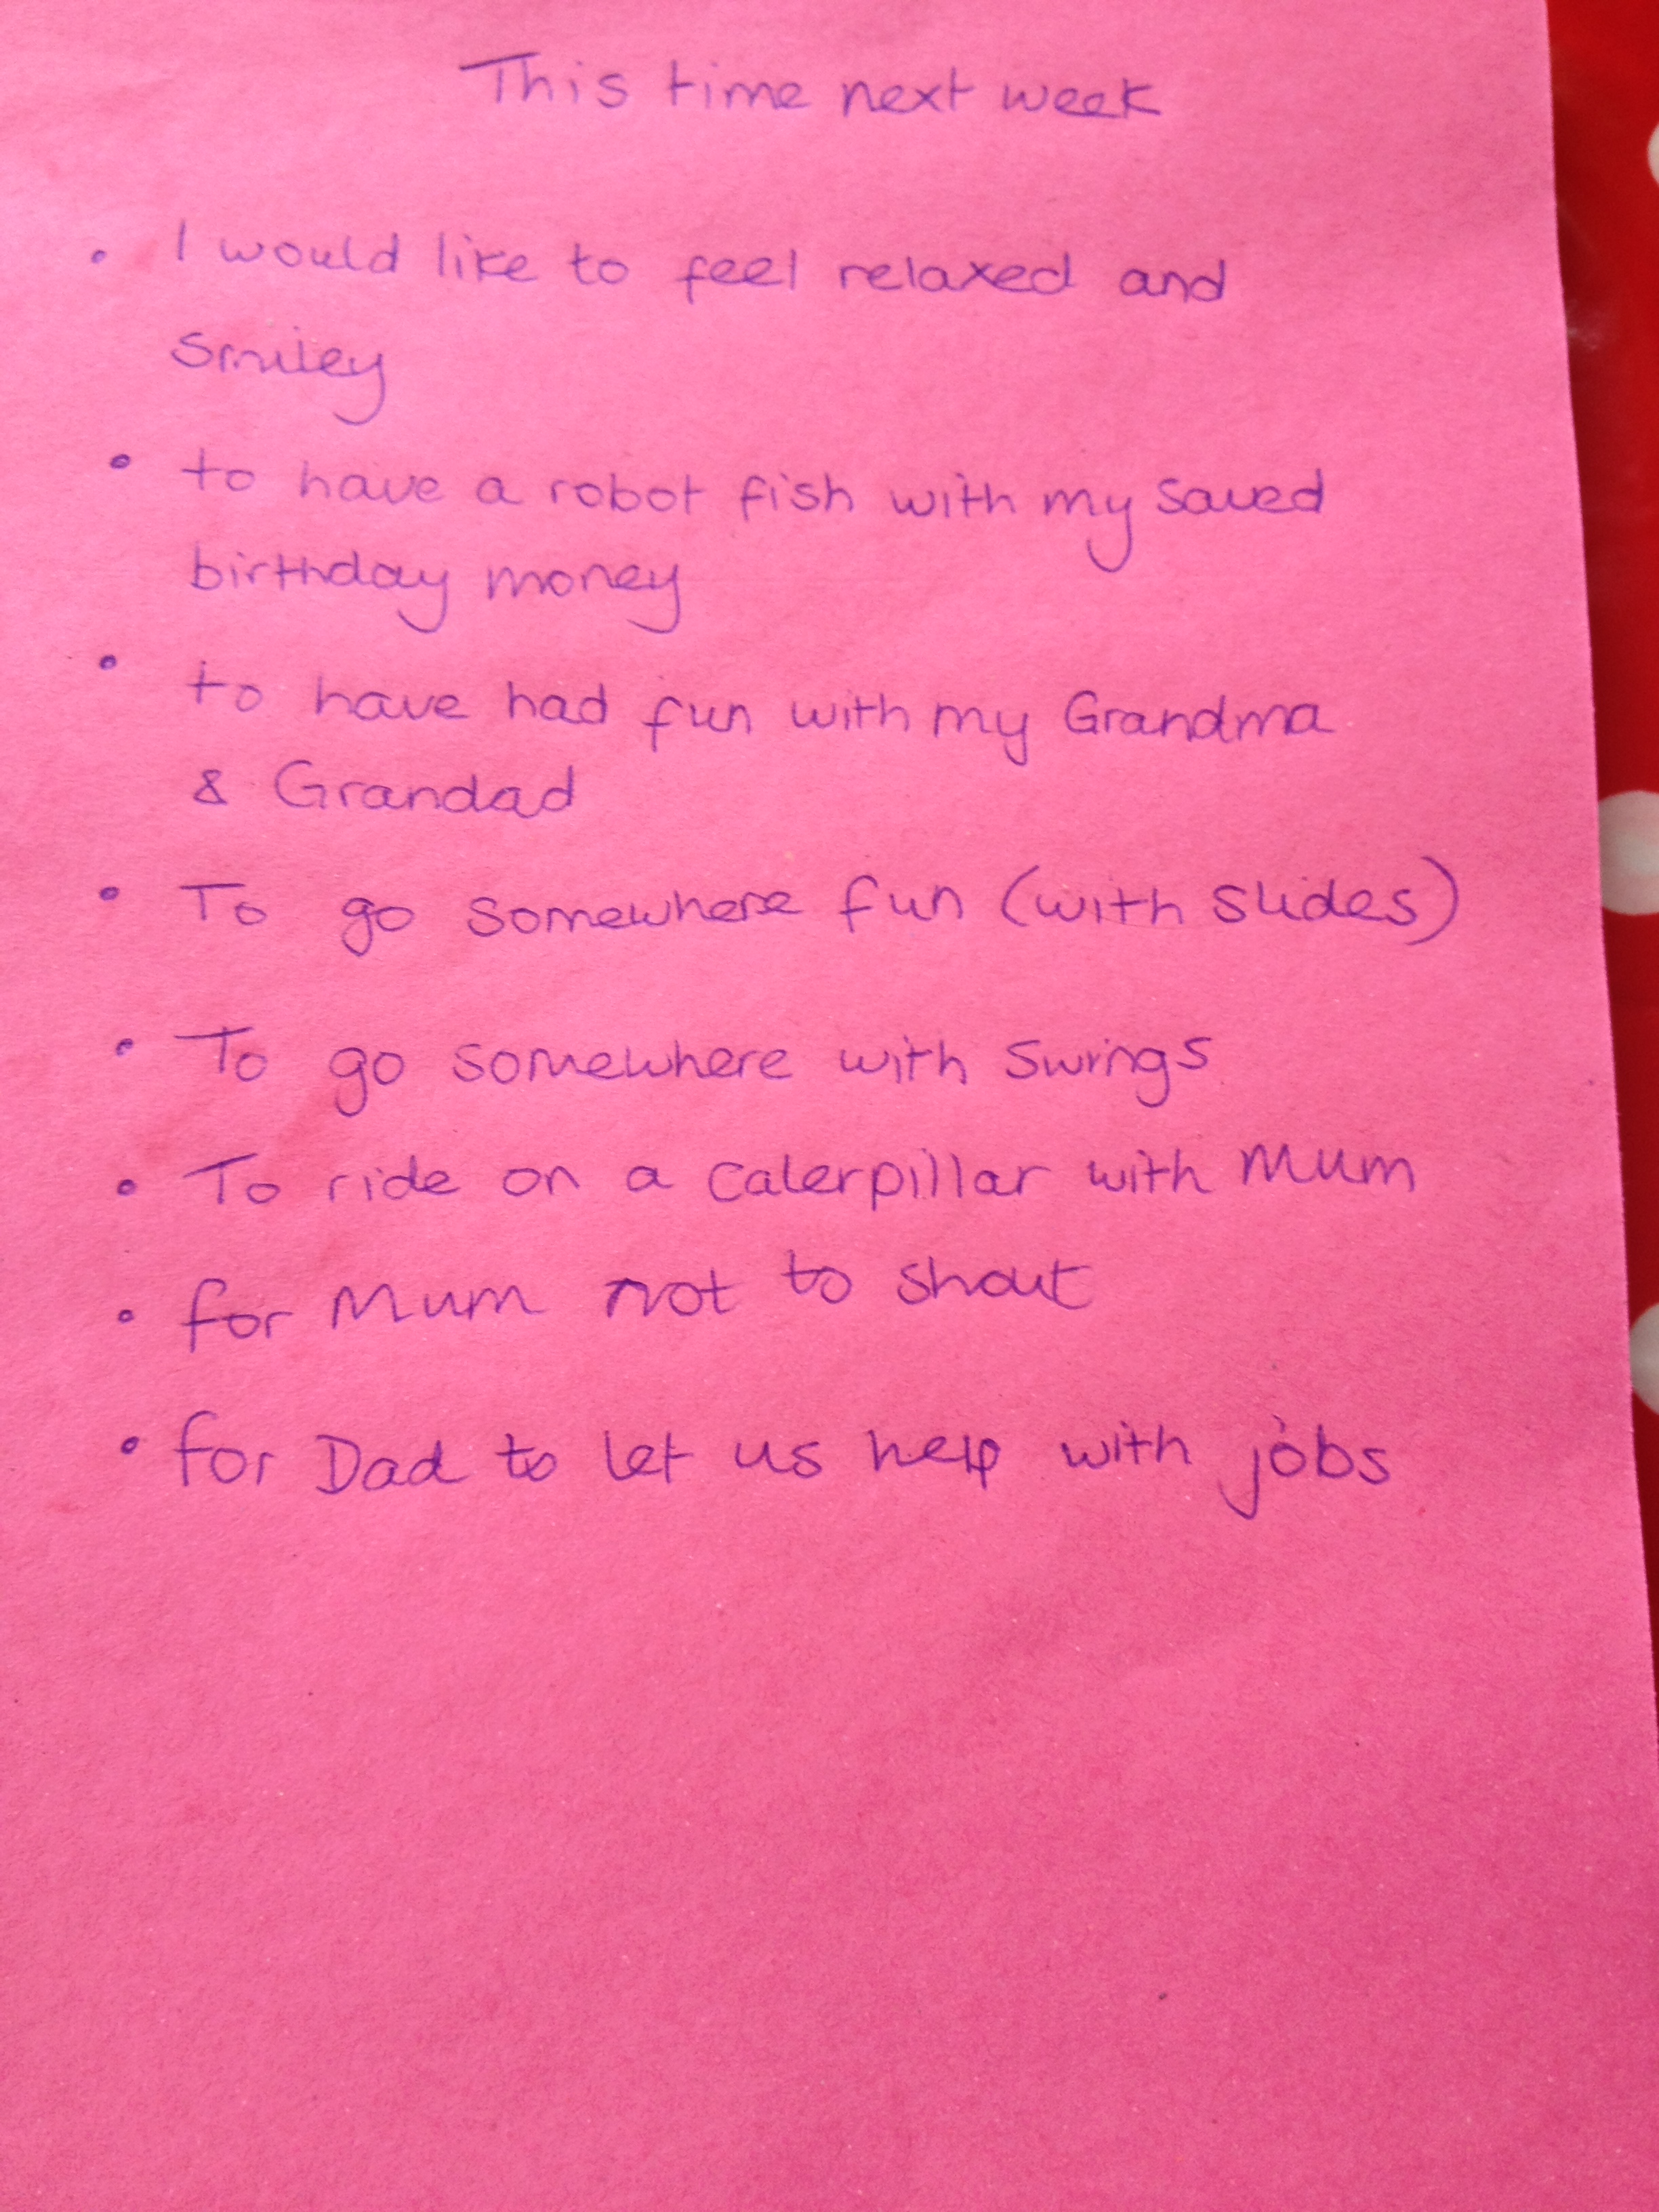 This time next week
• I would like to feel relaxed and
smiley
• to have a robot fish with my saved
birthday money
• to have had fun with my Grandma
& Grandad
• To go somewhere fun (with slides)
• To go somewhere with swings
• To ride on a caterpillar with Mum
• for Mum not to shout
• for Dad to let us help with jobs